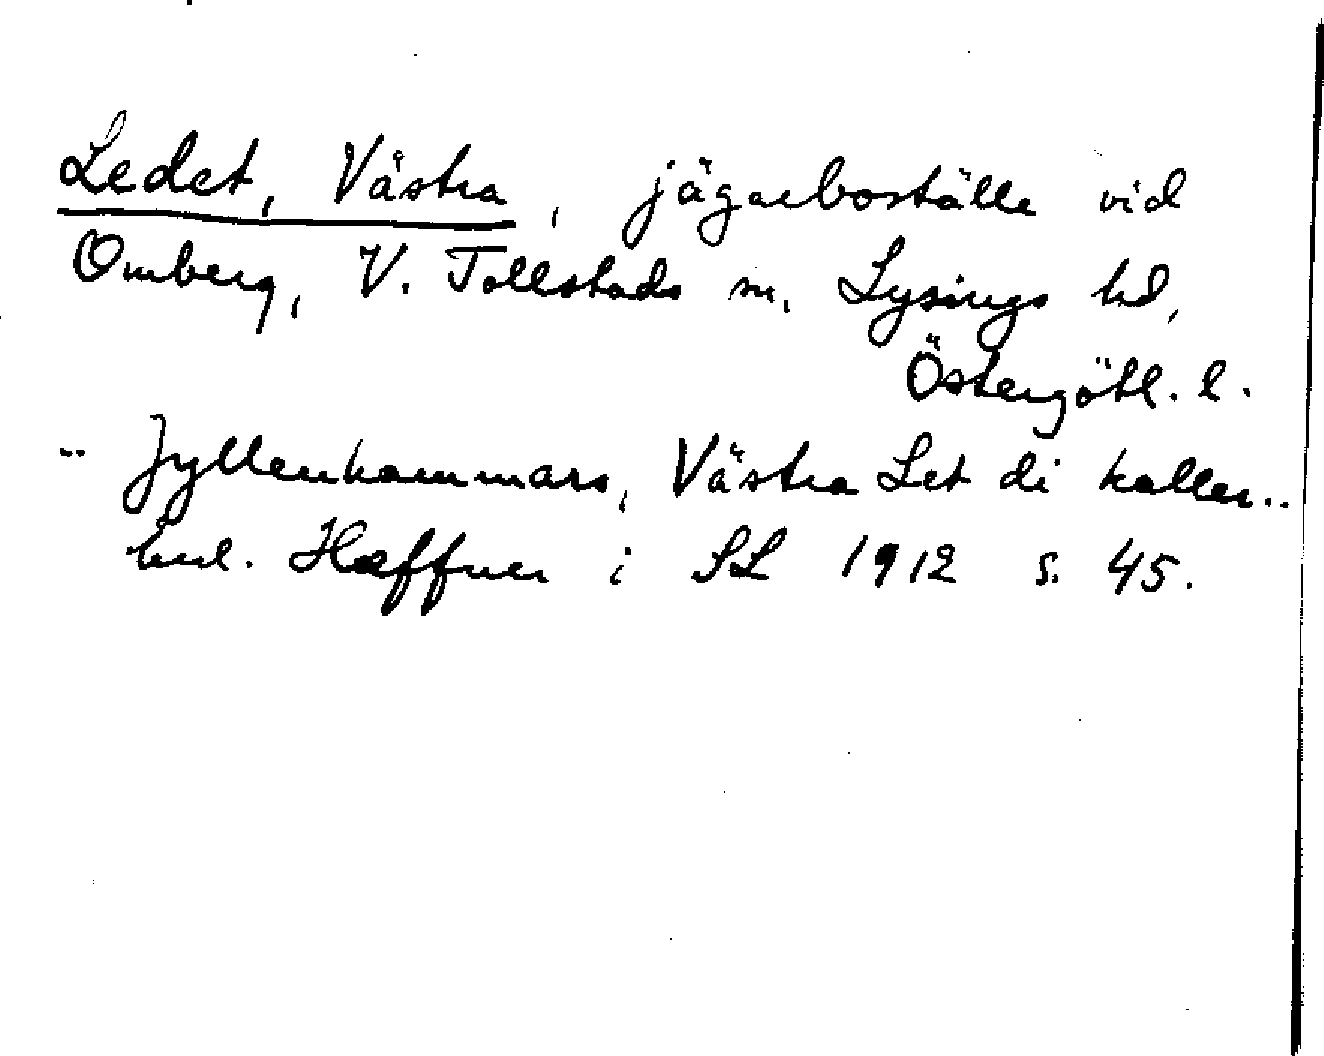 Ledet, Västra, jägarboställe vid
Omberg, V. Tollstads sn, Lysings hd,
Östergötl. l.
.. Jyllenhammars, Västra Let di kaller..
enl. Hæffner i SL 1912 s. 45.